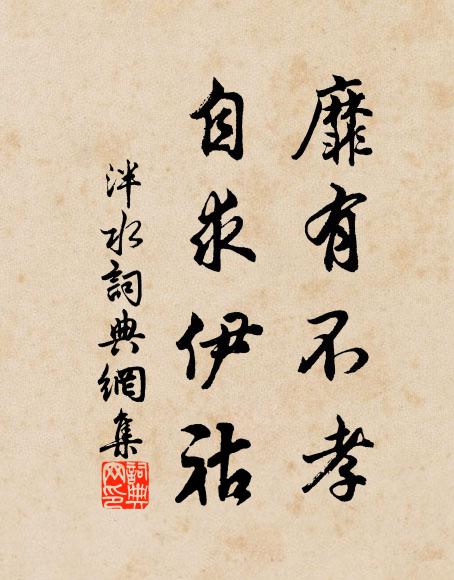 靡有不孝
自求伊祜
泮水詞典網集
詞典網印